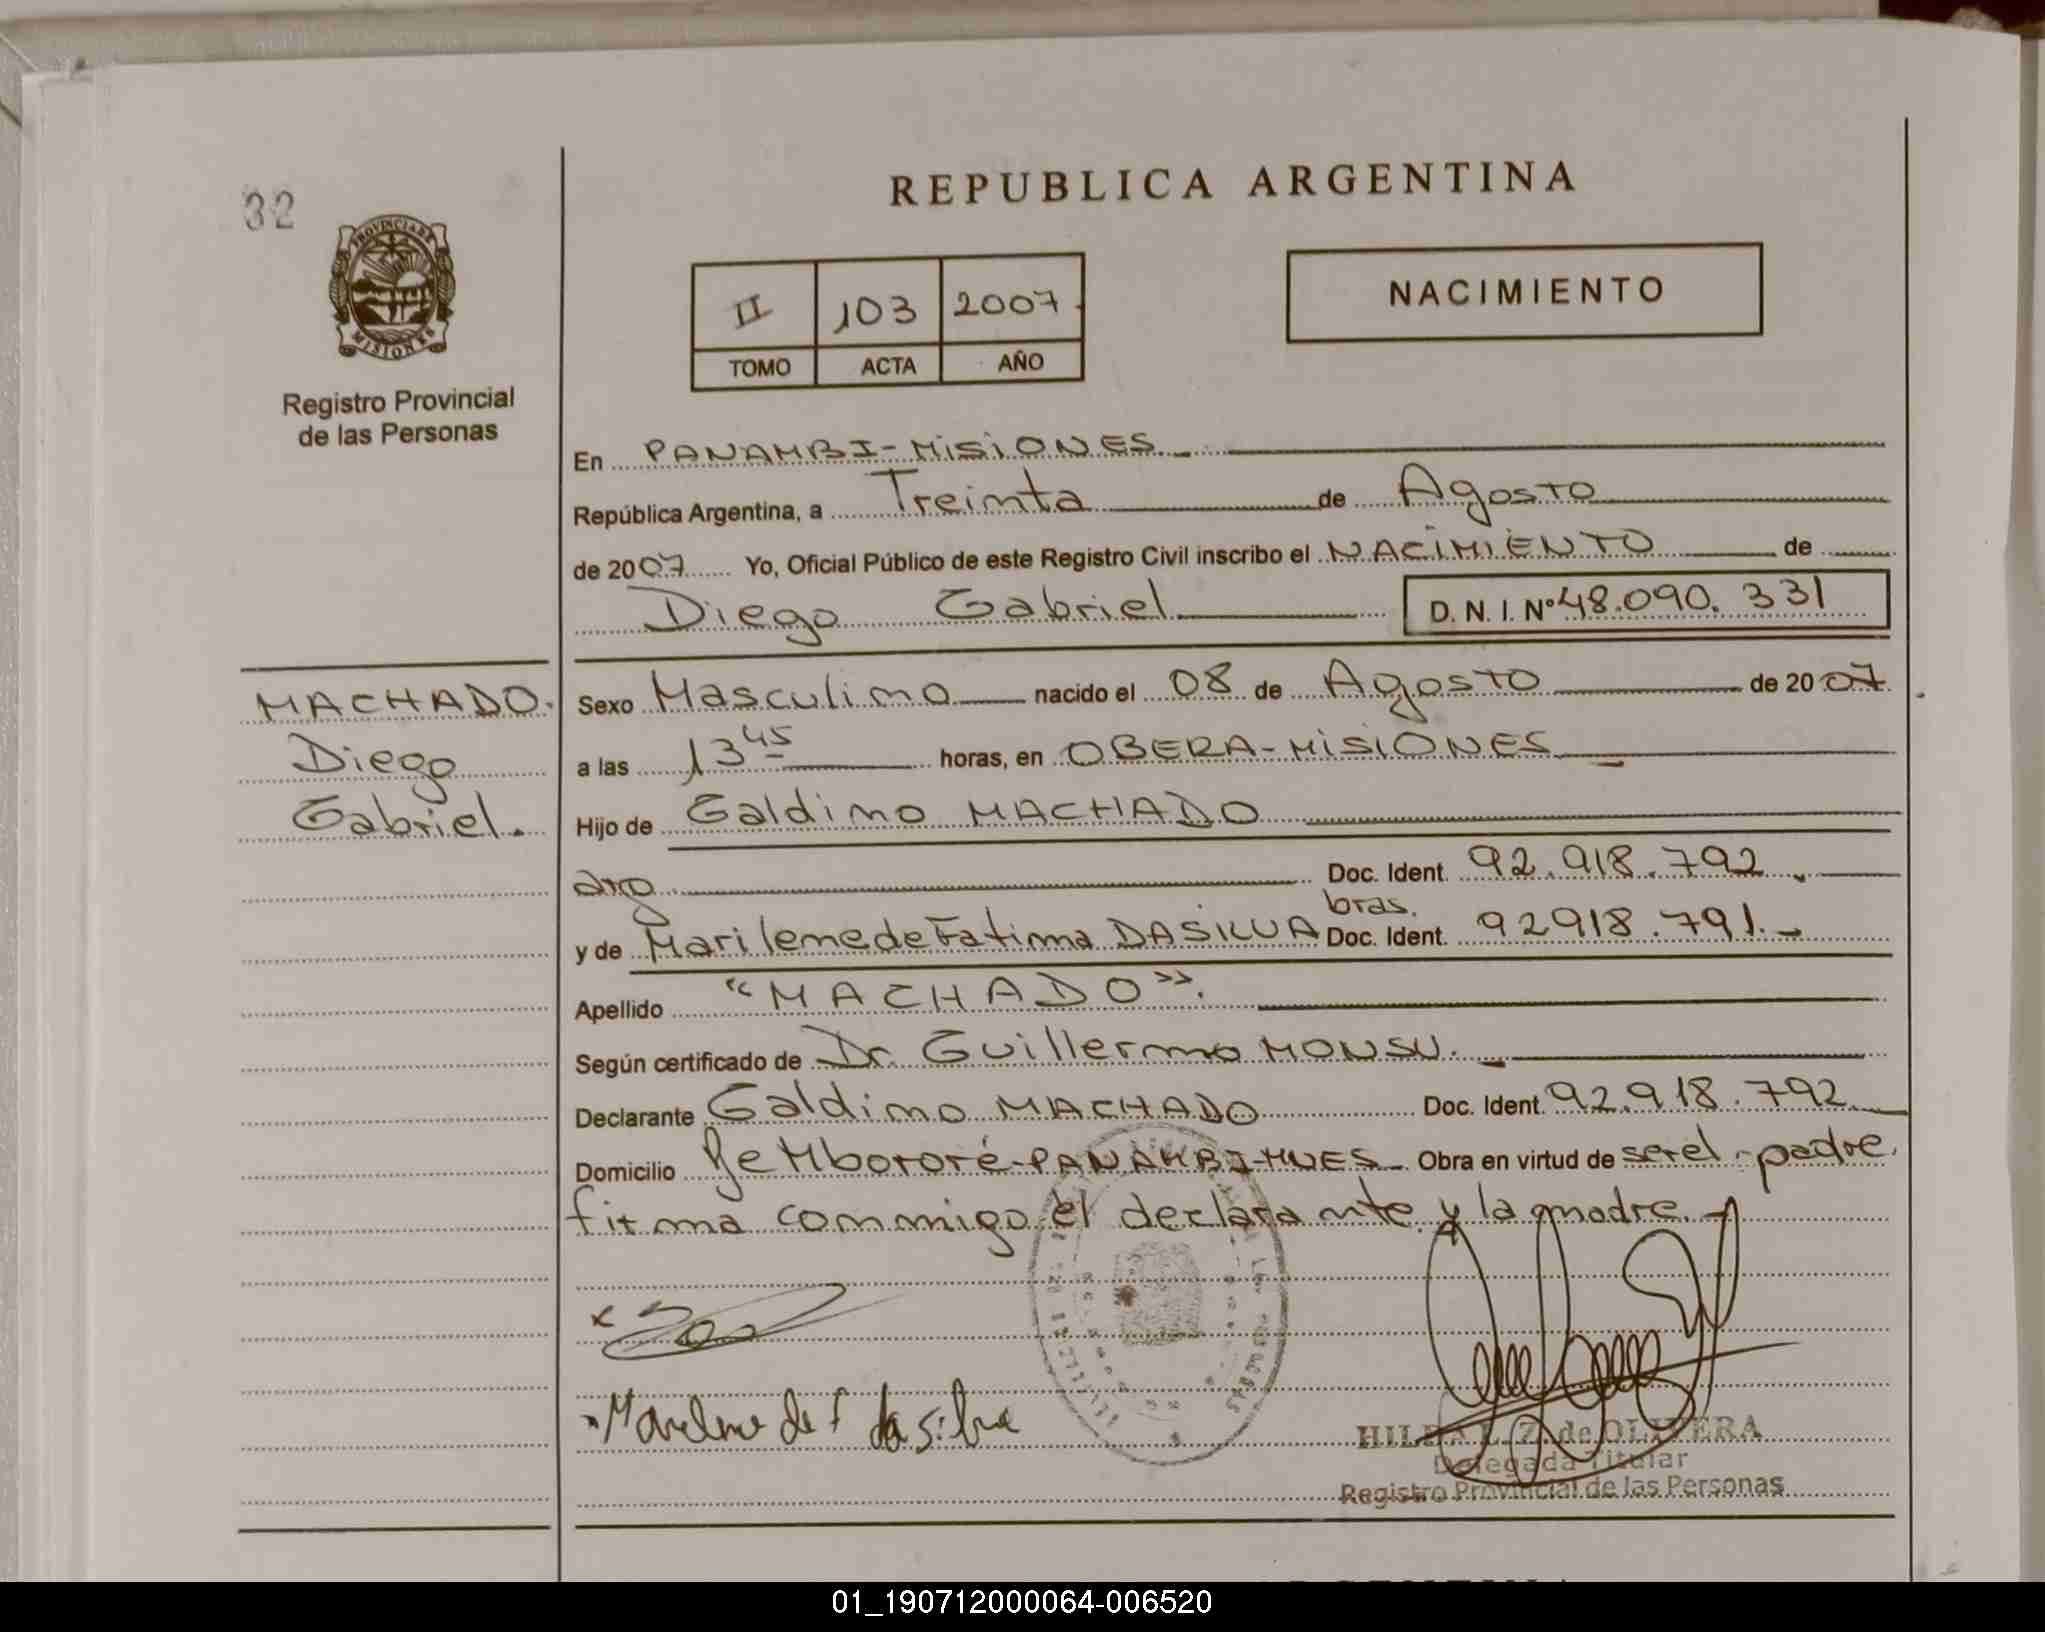 32
PROVINCIA DE
MISIONES
Registro Provincial
de las Personas
REPUBLICA ARGENTINA
II 103 2007
TOMO ACTA AÑO
NACIMIENTO
En PANAMBI-MISIONES.
República Argentina, a Treinta de Agosto
de 2007 Yo, Oficial Público de este Registro Civil inscribo el NACIMIENTO de
Diego Gabriel D. N. I. Nº 48.090.331
MACHADO.
Diego
Gabriel.
Sexo Masculino nacido el 08 de Agosto de 2007
a las 13 45 horas, en OBERA-MISIONES
Hijo de Galdino MACHADO
arg Doc. Ident. 92.918.792.
bras.
y de Marilene de Fatima DA SILVA Doc. Ident. 92918.791.-
Apellido "MACHADO".
Según certificado de Dr. Guillermo MONSU.
Declarante Galdino MACHADO Doc. Ident. 92.918.792
Domicilio Bº Mbororé-PANAMBI-MNES Obra en virtud de ser el padre.
firma conmigo el declarante y la madre.
Marilene de F da silva
HILDA L. Z. de OLIVERA
Delegada Titular
Registro Provincial de las Personas
01_190712000064-006520